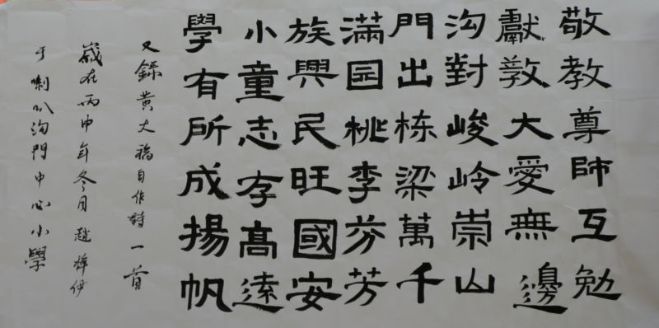 敬教尊師互勉
獻教大愛無邊
沟對峻岭崇山
門出栋梁萬千
滿园桃李芬芳
族興民旺國安
小童志存髙遠
學有所成揚帆
又錄黄福自作詩一首
歲在丙申年冬月趙
于喇叭沟門中心小學